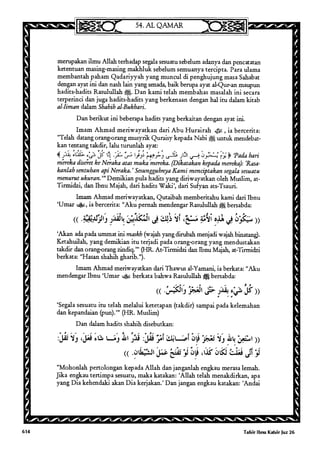 54. AL QAMAR
merupakan ilmu Allah terhadap segala sesuatu sebelum adanya dan pencatatan
ketentuan masing-masing makhluk sebelum semuanya tercipta. Para ulama
membantah paham Qadariyyah yang muncul di penghujung masa Sahabat
dengan ayat ini dan nash lain yang senada, baik berupa ayat al-Qur-an maupun
hadits-hadits Rasulullah ﷺ. Dan kami telah membahas masalah ini secara
terperinci dan juga hadits-hadits yang berkenaan dengan hal itu dalam kitab
al-Iiman dalam Shahih al-Bukhari.
Dan berikut ini beberapa hadits yang berkaitan dengan ayat ini.
Imam Ahmad meriwayatkan dari Abu Hurairah ؓ, ia bercerita:
"Telah datang orang-orang musyrik Quraisy kepada Nabi ﷺ untuk mendebat-
kan tentang takdir, lalu turunlah ayat:
﴿ يَوْمَ يُسْحَبُونَ فِي النَّارِ عَلَى وُجُوهِهِمْ ذُوقُوا مَسَّ سَقَرَ. إِنَّا كُلَّ شَيْءٍ خَلَقْنَاهُ بِقَدَرٍ ﴾ 'Pada hari
mereka diseret ke Neraka atas muka mereka. (Dikatakan kepada mereka): 'Rasa-
kanlah sentuhan api Neraka.' Sesungguhnya Kami menciptakan segala sesuatu
menurut ukuran.'" Demikian pula hadits yang diriwayatkan oleh Muslim, at-
Tirmidzi, dan Ibnu Majah, dari hadits Waki', dari Sufyan ats-Tsauri.
Imam Ahmad meriwayatkan, Qutaibah memberitahu kami dari Ibnu
'Umar ؓ, ia bercerita: "Aku pernah mendengar Rasulullah ﷺ bersabda:
'Akan ada pada ummat ini maskh (wajah yang dirubah menjadi wajah binatang).
Ketahuilah, yang demikian itu terjadi pada orang-orang yang mendustakan
takdir dan orang-orang zindiq.'" (HR. At-Tirmidzi dan Ibnu Majah, at-Tirmidzi
berkata: "Hasan shahih gharib.").
Imam Ahmad meriwayatkan dari Thawus al-Yamani, ia berkata: "Aku
mendengar Ibnu 'Umar ؓ berkata bahwa Rasulullah ﷺ bersabda:
(( كُلُّ شَيْءٍ بِقَدَرٍ حَتَّى الْعَجْزُ وَالْكَيْسُ. ))
'Segala sesuatu itu telah melalui ketetapan (takdir) sampai pada kelemahan
dan kepandaian (pun).'" (HR. Muslim)
Dan dalam hadits shahih disebutkan:
(( اسْتَعِنْ بِاللهِ وَلاَ تَعْجَزْ فَإِنْ أَصَابَكَ أَمْرٌ فَقُلْ: قَدَّرَ اللهُ وَمَا شَاءَ فَعَلَ، وَلاَ تَقُلْ:
لَوْ أَنِّي فَعَلْتُ لَكَانَ كَذَا، فَإِنَّ لَوْ تَفْتَحُ عَمَلَ الشَّيْطَانِ. ))
"Mohonlah pertolongan kepada Allah dan janganlah engkau merasa lemah.
Jika engkau tertimpa sesuatu, maka katakan: 'Allah telah menakdirkan, apa
yang Dia kehendaki akan Dia kerjakan.' Dan jangan engkau katakan: 'Andai
614
Tafsir Ibnu Katsir Juz 26